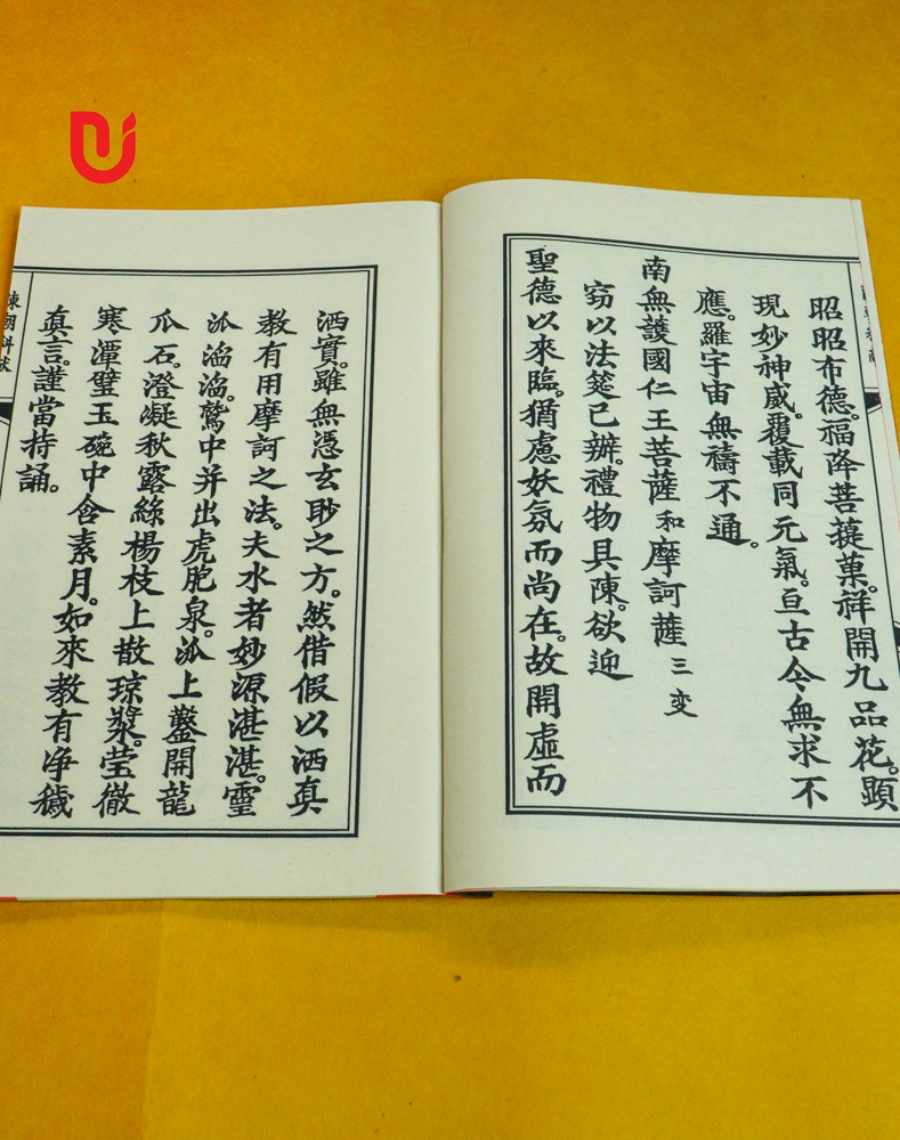 昭昭布德。福降菩提菓。祥開九品花。顕
現妙神威。覆載同元氣。亘古今無求不
應。羅宇宙無禱不通。
南無護國仁王菩薩和摩訶薩三变
窃以法筵已辦。禮物具陳。欲迎
聖德以來臨。猶慮妖氛而尚在。故開虛而
洒實。雖無憑玄眇之方。然借假以洒真
教有用摩訶之法。夫水者妙源湛湛。靈
派滔滔。鷲中并出虎胞泉。派上鑿開龍
爪石。澄凝秋露綠楊枝上散瓊漿。莹徹
寒潭璧玉碗中含素月。如來教有净穢
真言。謹當持誦。